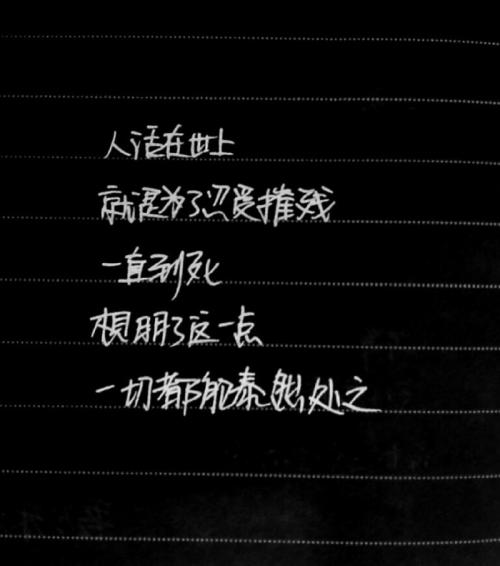 人活在世上
就是为了忍受摧残
一直到死
想明了这一点
一切都能泰然处之